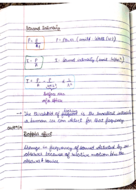 Sound Intensity
I = P/A
P - Power (unit Watt (W))
I = P/A
I - Sound intensity (unit W/m²)
I = P/A = P/4πr²
Surface area
of a sphere
→ The threshold of is the smallest intensity
a human ear can detect for that frequency.
Doppler effect
Change in frequency of sound detected by an
observer because of relative motion b/w the
source